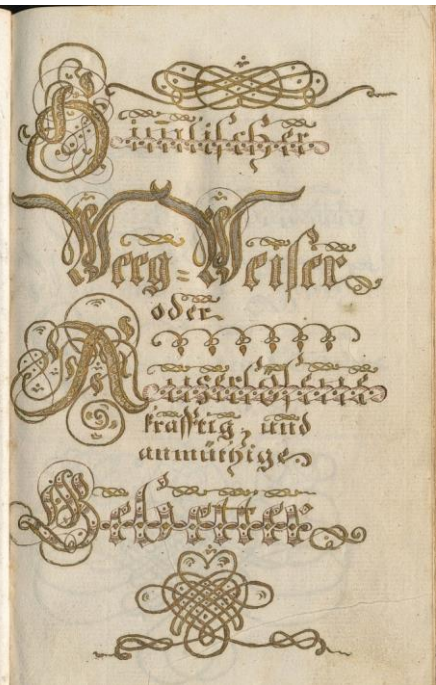 Himlischer
Weeg=Weiser
oder
Auserlesene
krafftig, und
anmüthige
Gebetter